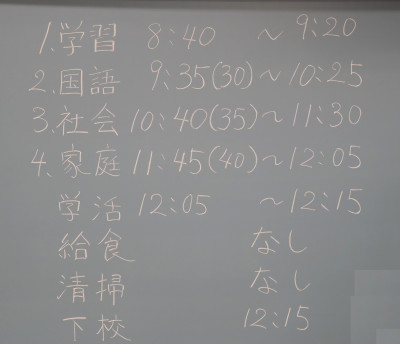 1.学習 8:40 ～ 9:20
2.国語 9:35(30)～10:25
3.社会 10:40(35)～11:30
4.家庭 11:45(40)～12:05
学活 12:05 ～12:15
給食 なし
清掃 なし
下校 12:15